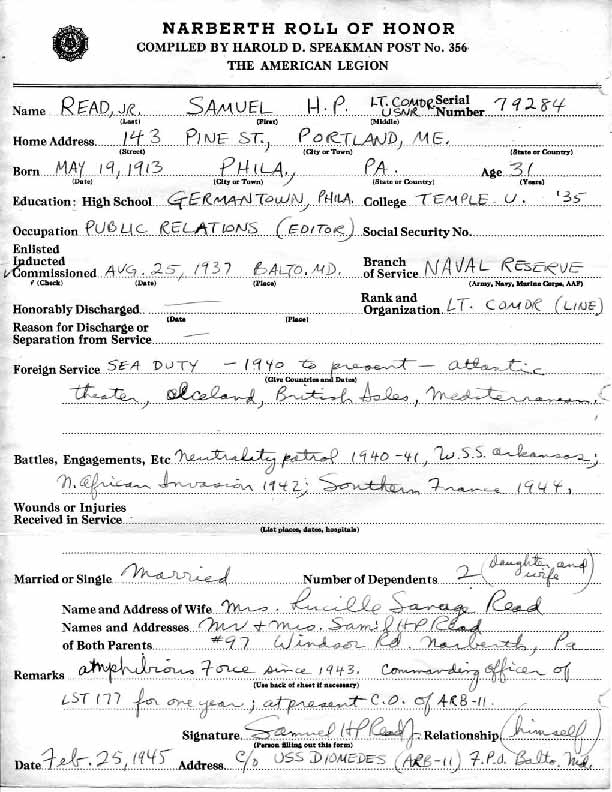 NARBERTH ROLL OF HONOR
COMPILED BY HAROLD D. SPEAKMAN POST No. 356
THE AMERICAN LEGION
Name READ, JR. SAMUEL H.P. LT. COMDR USNR Serial Number 79284
(Last) (First) (Middle)
Home Address 143 PINE ST., PORTLAND, ME.
(Street) (City or Town) (State or Country)
Born MAY 19, 1913 PHILA., PA. Age 31
(Date) (City or Town) (State or Country) (Years)
Education: High School GERMANTOWN, PHILA. College TEMPLE U. '35
Occupation PUBLIC RELATIONS (EDITOR) Social Security No.
Enlisted
Inducted Branch
✓Commissioned AUG. 25, 1937 BALTO. MD. of Service NAVAL RESERVE
(Check) (Date) (Place) (Army, Navy, Marine Corps, AAF)
Rank and
Honorably Discharged — Organization LT. COMDR (LINE)
(Date (Place)
Reason for Discharge or
Separation from Service —
Foreign Service SEA DUTY - 1940 to present - Atlantic
(Give Countries and Dates)
theater, Iceland, British Isles, Mediterranean.
Battles, Engagements, Etc Neutrality patrol 1940-41, U.S.S. Arkansas;
N. African Invasion 1942; Southern France 1944.
Wounds or Injuries
Received in Service
(List places, dates, hospitals)
Married or Single Married Number of Dependents 2 (daughter and wife)
Name and Address of Wife Mrs. Lucille Savage Read
Names and Addresses Mr + Mrs. Saml HP Read
of Both Parents #97 Windsor Rd. Narberth, Pa
Remarks Amphibious Force since 1943. Commanding Officer of
(Use back of sheet if necessary)
LST 177 for one year; at present C.O. of ARB-11.
Signature Samuel HP Read Jr. Relationship (himself)
(Person filling out this form)
Date Feb. 25, 1945 Address C/o USS DIOMEDES (ARB-11) F.P.O. Balto. Md.